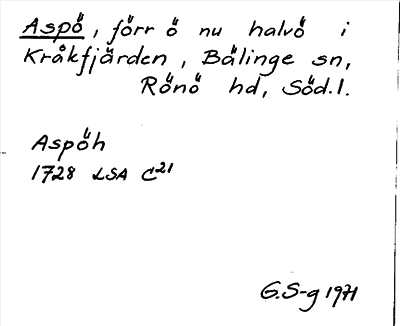 Aspö, förr ö nu halvö i
Kråkfjärden, Bälinge sn,
Rönö hd, Söd.l.
Aspöh
1728 LSA C21
G.S-g 1971